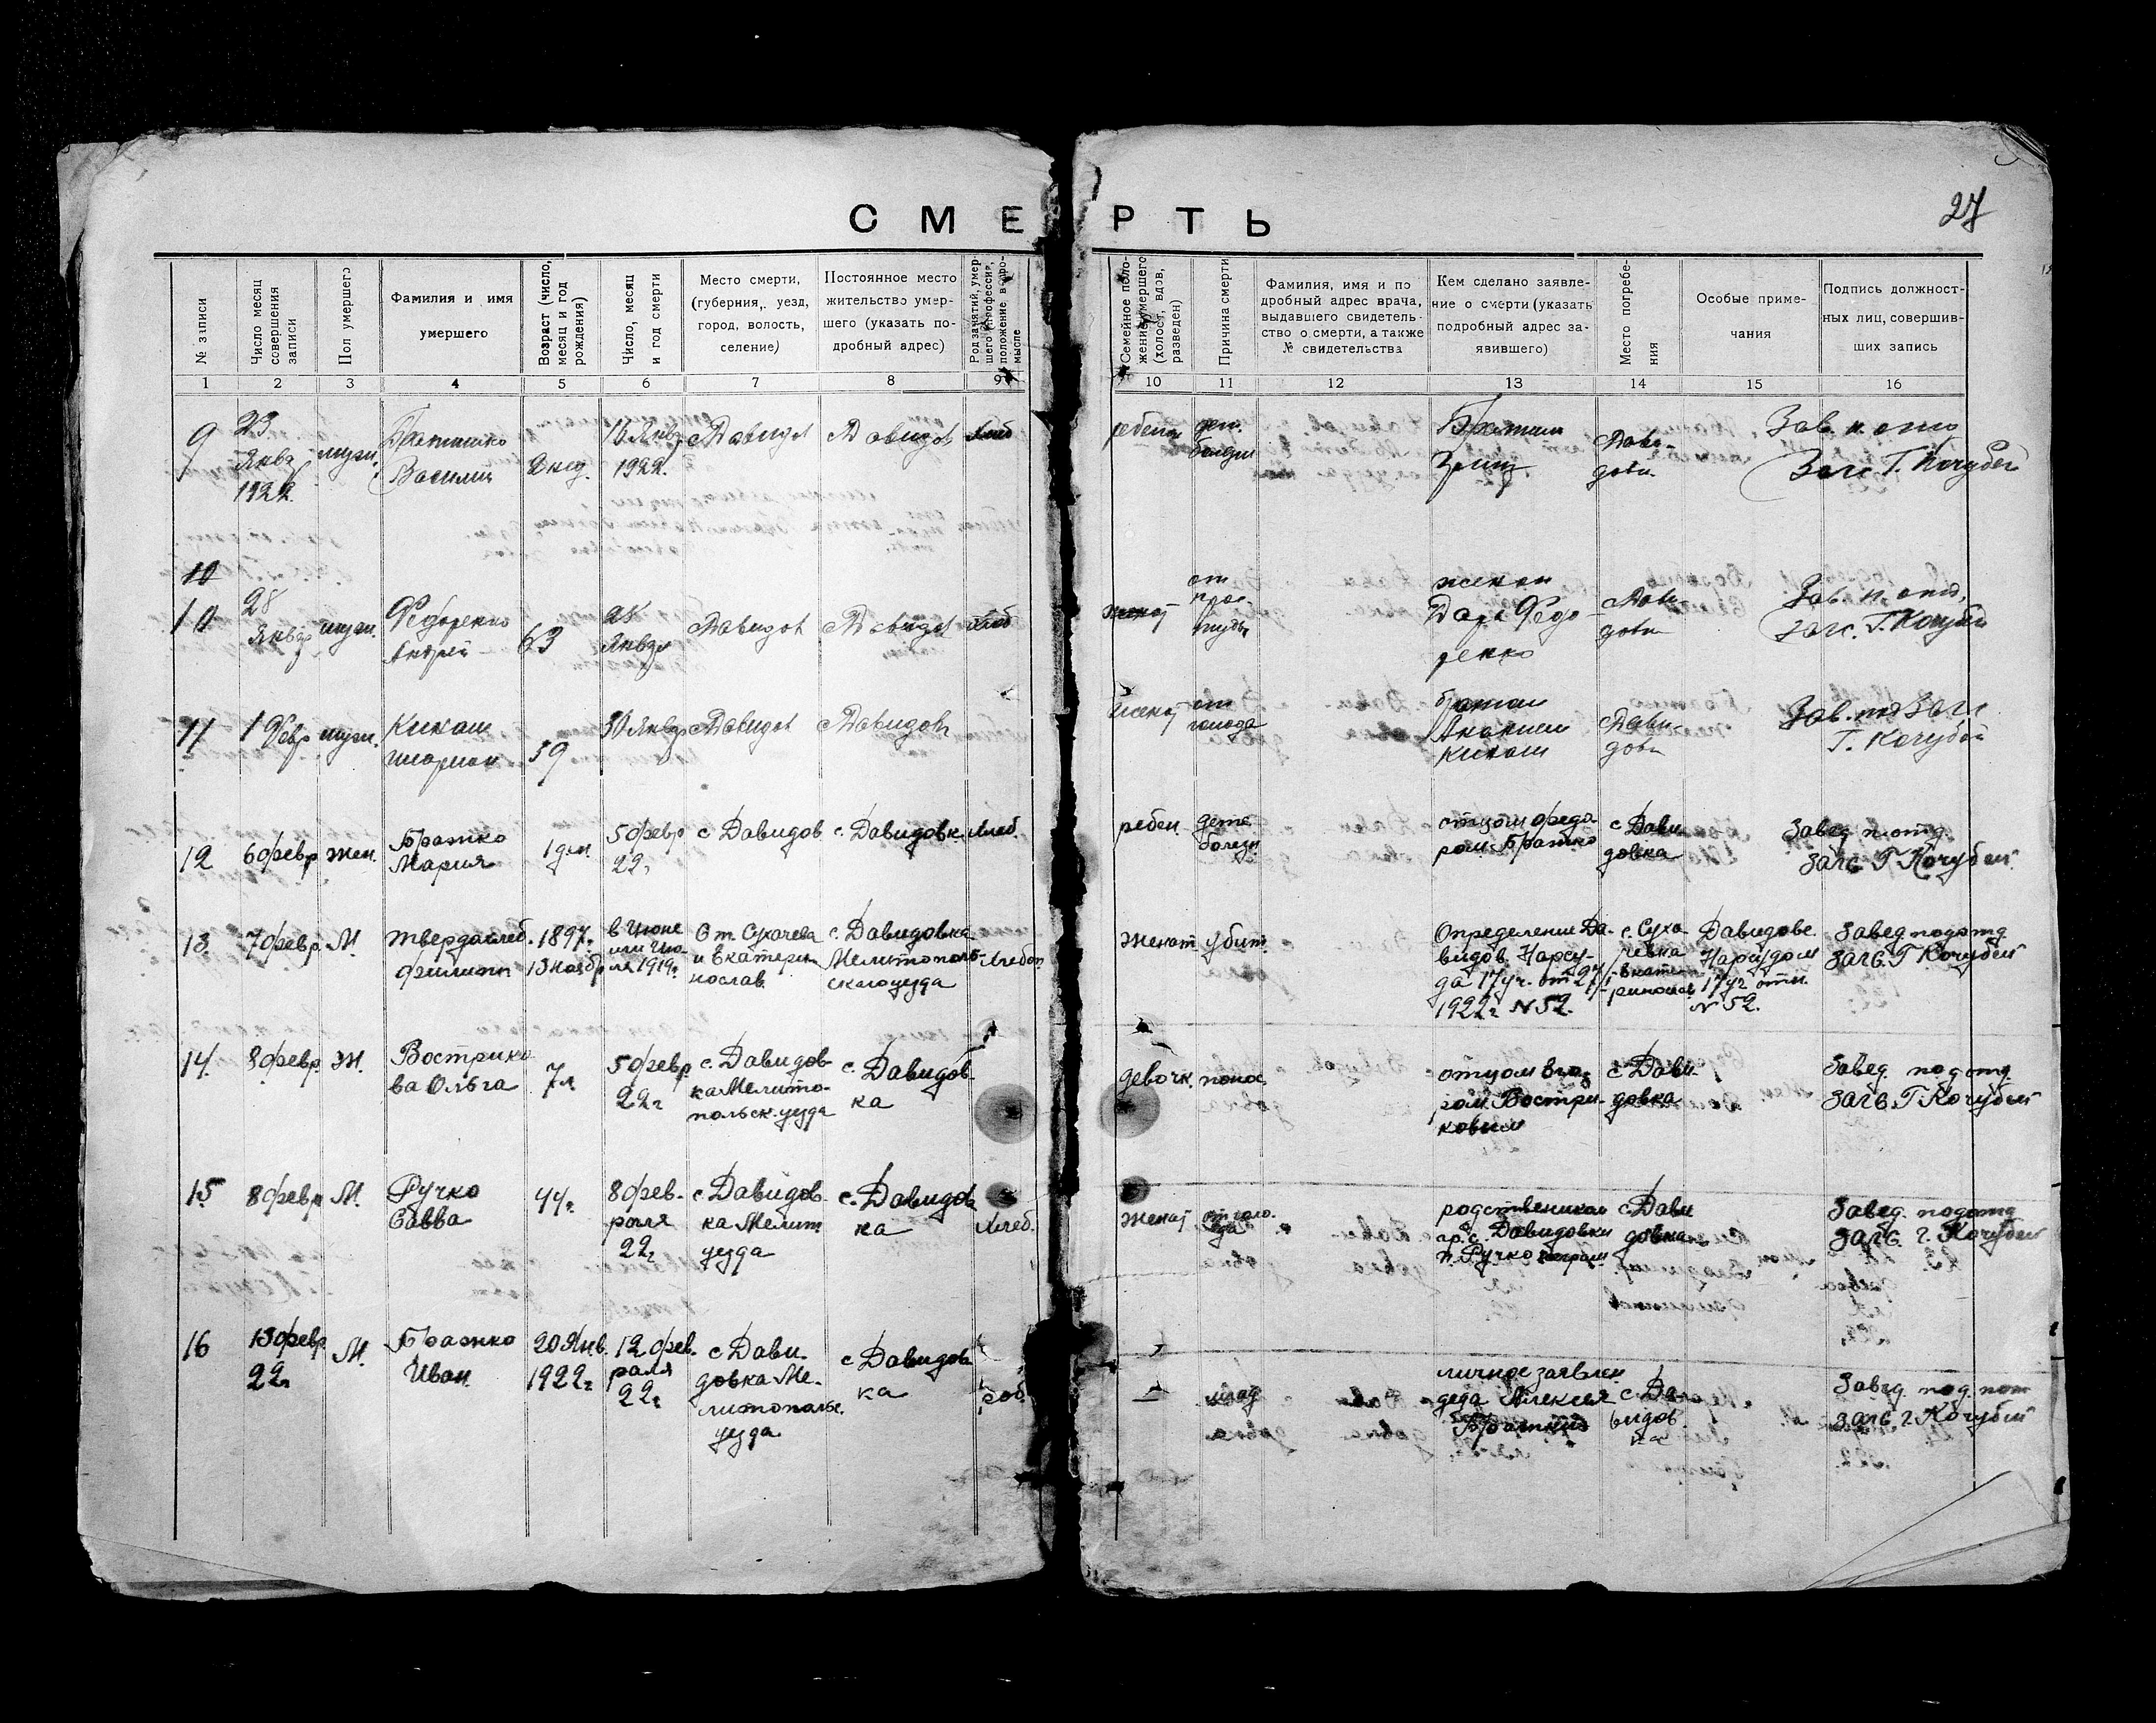 СМЕРТЬ
27
№ записи
Число месяц
совершения
записи
Пол умершего
Фамилия и имя
умершего
Возраст (число,
месяц и год
рождения)
Число, месяц
и год смерти
Место смерти,
(губерния, уезд,
город, волость,
селение)
Постоянное место
жительство умер-
шего (указать по-
дробный адрес)
Род занятий, умер-
шего и профессия,
положение в про-
мысле
Семейное поло-
жение умершего
(холост, вдов,
разведен)
Причина смерти
Фамилия, имя и по
дробный адрес врача,
выдавшего свидетель-
ство о смерти, а также
№ свидетельства
Кем сделано заявле-
ние о смерти (указать
подробный адрес за-
явившего)
Место погребе-
ния
Особые приме-
чания
Подпись должност-
ных лиц, совершив-
ших запись
1 2 3 4 5 6 7 8 9 10 11 12 13 14 15 16
9
23
Янва
1922
муж.
Василий
16 Янв
1922.
Давидов
Давидов
Хлеб
Дави-
довк
Загс. Г. Кочубей
10
10
28
Январ
муж.
Федоренко
Андрей
63
28
Январ
Давидов
Давидов
Хлеб
женат
от
прос-
туды
женой
Дарь Федо
ренко
Дави-
довк
Зав. п. отд.
загс. Г. Кочубей
11
1 Февр
муж.
Кикаш
39
30 Январ
Давидов
Давидовк
женат
от
голода
братом
Кикаш
Дави-
довк
Зав. под Загс
Г. Кочубей
12
6 февр
жен.
Бражко
Мария
1 дн.
5 февр
22г
с Давидов
с. Давидовк
Хлеб.
ребен.
детс.
болезн
отцом Федо
ром Бражко
с Дави
довка
Завед п отд.
загс. Г Кочубей
13.
7 февр.
М.
Твердохлеб.
Филипп.
1897г.
13 ноябр
в июне
или ию-
ля 1919г
Ст. Сухачева
и Екатерин
нослав.
с. Давидовка
Мелитополь-
ского уезда
Хлебоп
женат.
убит.
Определение Да-
видов. Нарсу-
да 17 уч. от 27/I-
1922г N 52.
с. Суха-
чевка
Екате-
ринослав
Давидове.
Нарсудом
17 уч отн.
N 52.
Завед подотд
загс. Г Кочубей
14.
8 февр.
Ж.
Вострико
ва Ольга
7 л.
5 февр
22г
с. Давидов-
ка Мелито-
польск. уезда
с. Давидов-
ка
девочк.
понос.
отцом Его-
ром Востри-
ковым
с Дави-
довка
Завед. подотд
загс. Г Кочубей
15
8 февр
М.
Ручко
Савва
44г.
8 фев-
раля
22г
с. Давидов-
ка Мелит
уезда
с. Давидов-
ка
Хлеб.
женат
от голо-
да
родственником
гр. с. Давидовки
с. Дави
довка
Завед. подотд
загс. г. Кочубей
16
13 февр.
22г
М.
Бражко
Иван
20 Янв.
1922г
12 фев.
раля
22г
с Дави-
довка Ме-
литопольс.
уезда
с Давидов-
ка
млад
личное заявлен
деда Алексея
Бражко
с. Да-
видов
ка
Завед. под. пот
загс. г. Кочубей